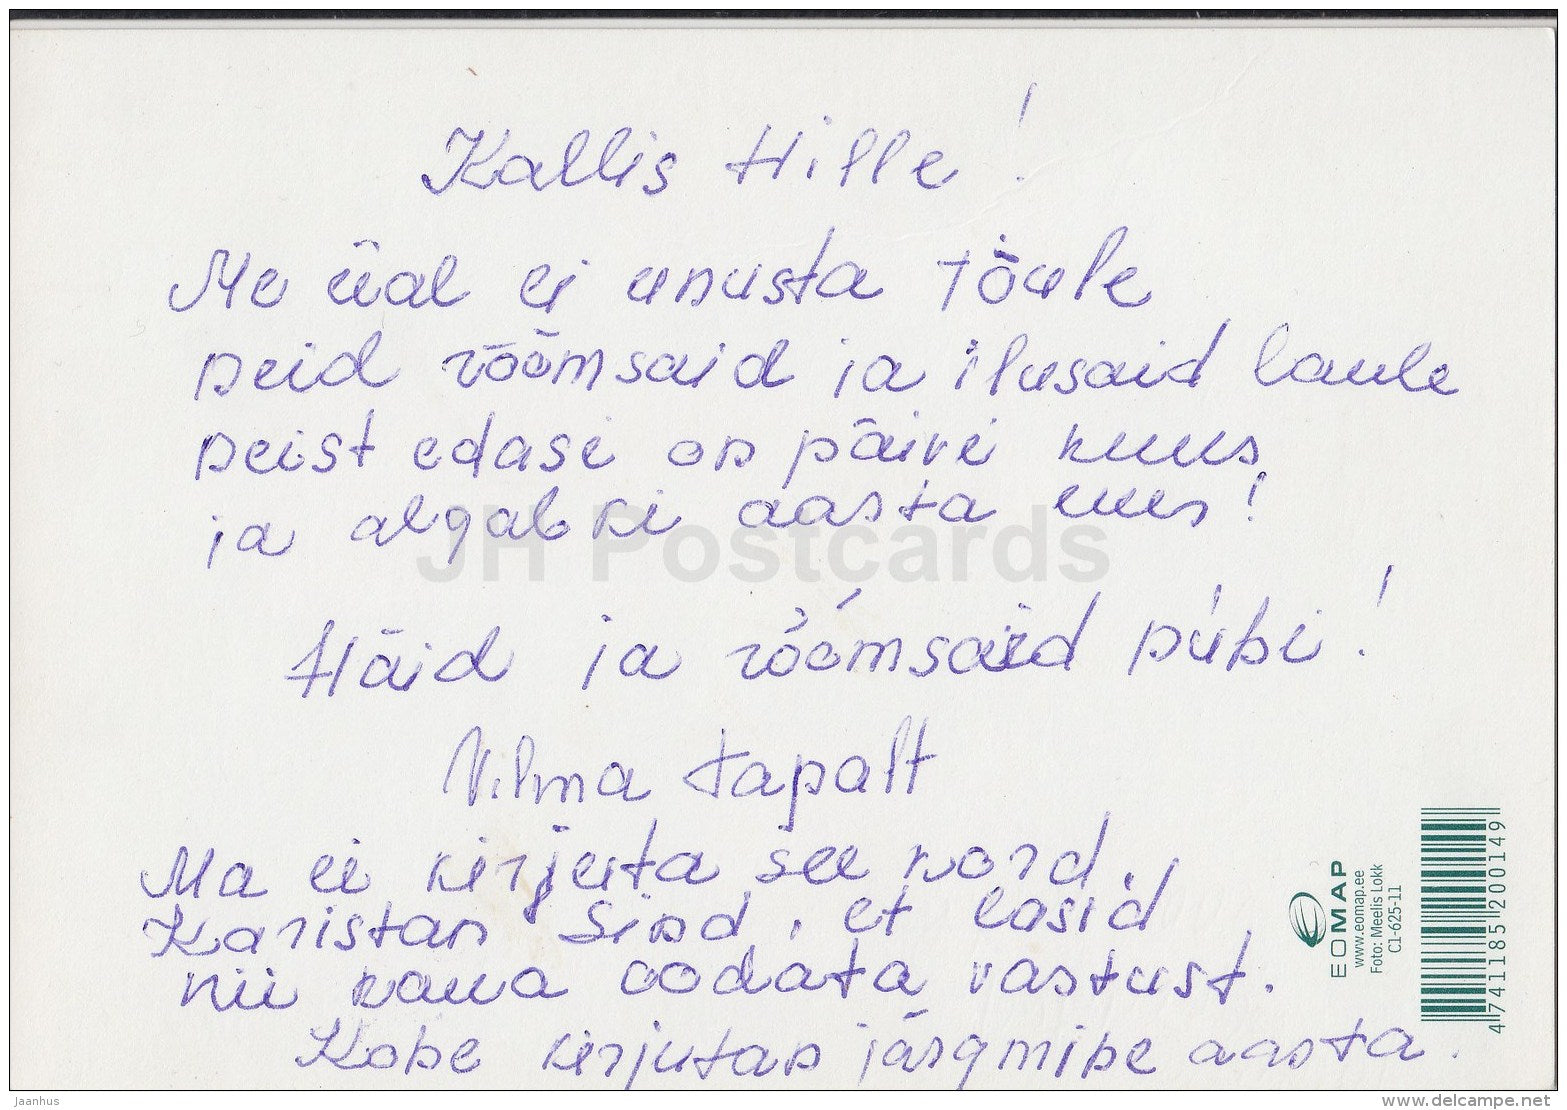 Kallis Hille!
Me iial ei unusta jõule
neid rõõmsaid ja ilusaid laule
neist edasi on päevi kuus
ja algabki aasta uus!
Häid ja rõõmsaid pühi!
Vilma Tapalt
Ma ei kirjuta see kord.
Karistan Sind, et lasid
nii kaua oodata vastust.
Kohe kirjutan järgmine aasta.
JH Postcards
EOMAP
www.eomap.ee
Foto: Meelis Lokk
C1-625-11
4 741185 200149
Jaanhus
www.delcampe.net